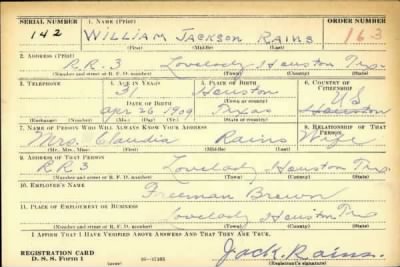 SERIAL NUMBER 1. NAME (Print) ORDER NUMBER
142 WILLIAM JACKSON RAINS 163
(First) (Middle) (Last)
2. ADDRESS (Print)
R.R.3 Lovelady Houston Tex.
(Number and street or R. F. D. number) (Town) (County) (State)
3. TELEPHONE 4. AGE IN YEARS 5. PLACE OF BIRTH 6. COUNTRY OF CITIZENSHIP
31 Houston U S
DATE OF BIRTH (Town or county)
Apr 26 1909 Texas Houston
(Exchange) (Number) (Mo.) (Day) (Yr.) (State or country)
7. NAME OF PERSON WHO WILL ALWAYS KNOW YOUR ADDRESS 8. RELATIONSHIP OF THAT PERSON
Mrs. Claudia Rains Wife
(Mr., Mrs., Miss) (First) (Middle) (Last)
9. ADDRESS OF THAT PERSON
R R 3 Lovelady Houston Tex
(Number and street or R. F. D. number) (Town) (County) (State)
10. EMPLOYER'S NAME
Freeman Brown
11. PLACE OF EMPLOYMENT OR BUSINESS
Lovelady Houston Tex
(Number and street or R. F. D. number) (Town) (County) (State)
I AFFIRM THAT I HAVE VERIFIED ABOVE ANSWERS AND THAT THEY ARE TRUE.
REGISTRATION CARD
D. S. S. FORM 1 Jack Rains
(Registrant's signature)